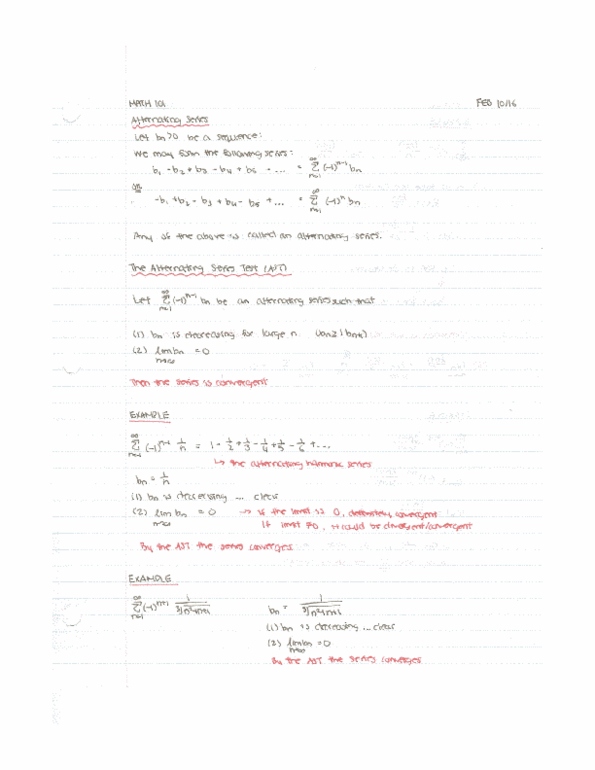 MATH 101 FEB 10/16
Alternating Series
Let bn>0 be a sequence:
We may form the following series:
b₁ - b₂ + b₃ - b₄ + b₅ - ... = ∞Σn=1 (-1)ⁿ⁻¹ bn
OR
-b₁ + b₂ - b₃ + b₄ - b₅ + ... = ∞Σn=1 (-1)ⁿ bn
Any of the above is called an alternating series.
The Alternating Series Test (AST)
Let ∞Σn=1 (-1)ⁿ⁻¹ bn be an alternating series such that
(1) bn is decreasing for large n. (bn ≥ bn+1)
(2) lim n→∞ bn = 0
Then the series is convergent
EXAMPLE
∞Σn=1 (-1)ⁿ⁻¹ 1/n = 1 - 1/2 + 1/3 - 1/4 + 1/5 - 1/6 + ...
↳ the alternating harmonic series
bn = 1/n
(1) bn is decreasing ... clear
(2) lim n→∞ bn = 0 → if the limit is 0, definitely convergent
If limit ≠0, it could be divergent/convergent
By the AST the series converges
EXAMPLE
∞Σn=1 (-1)ⁿ⁺¹ bn =
(1) bn is decreasing ... clear
(2) lim n→∞ bn = 0
By the AST the series converges